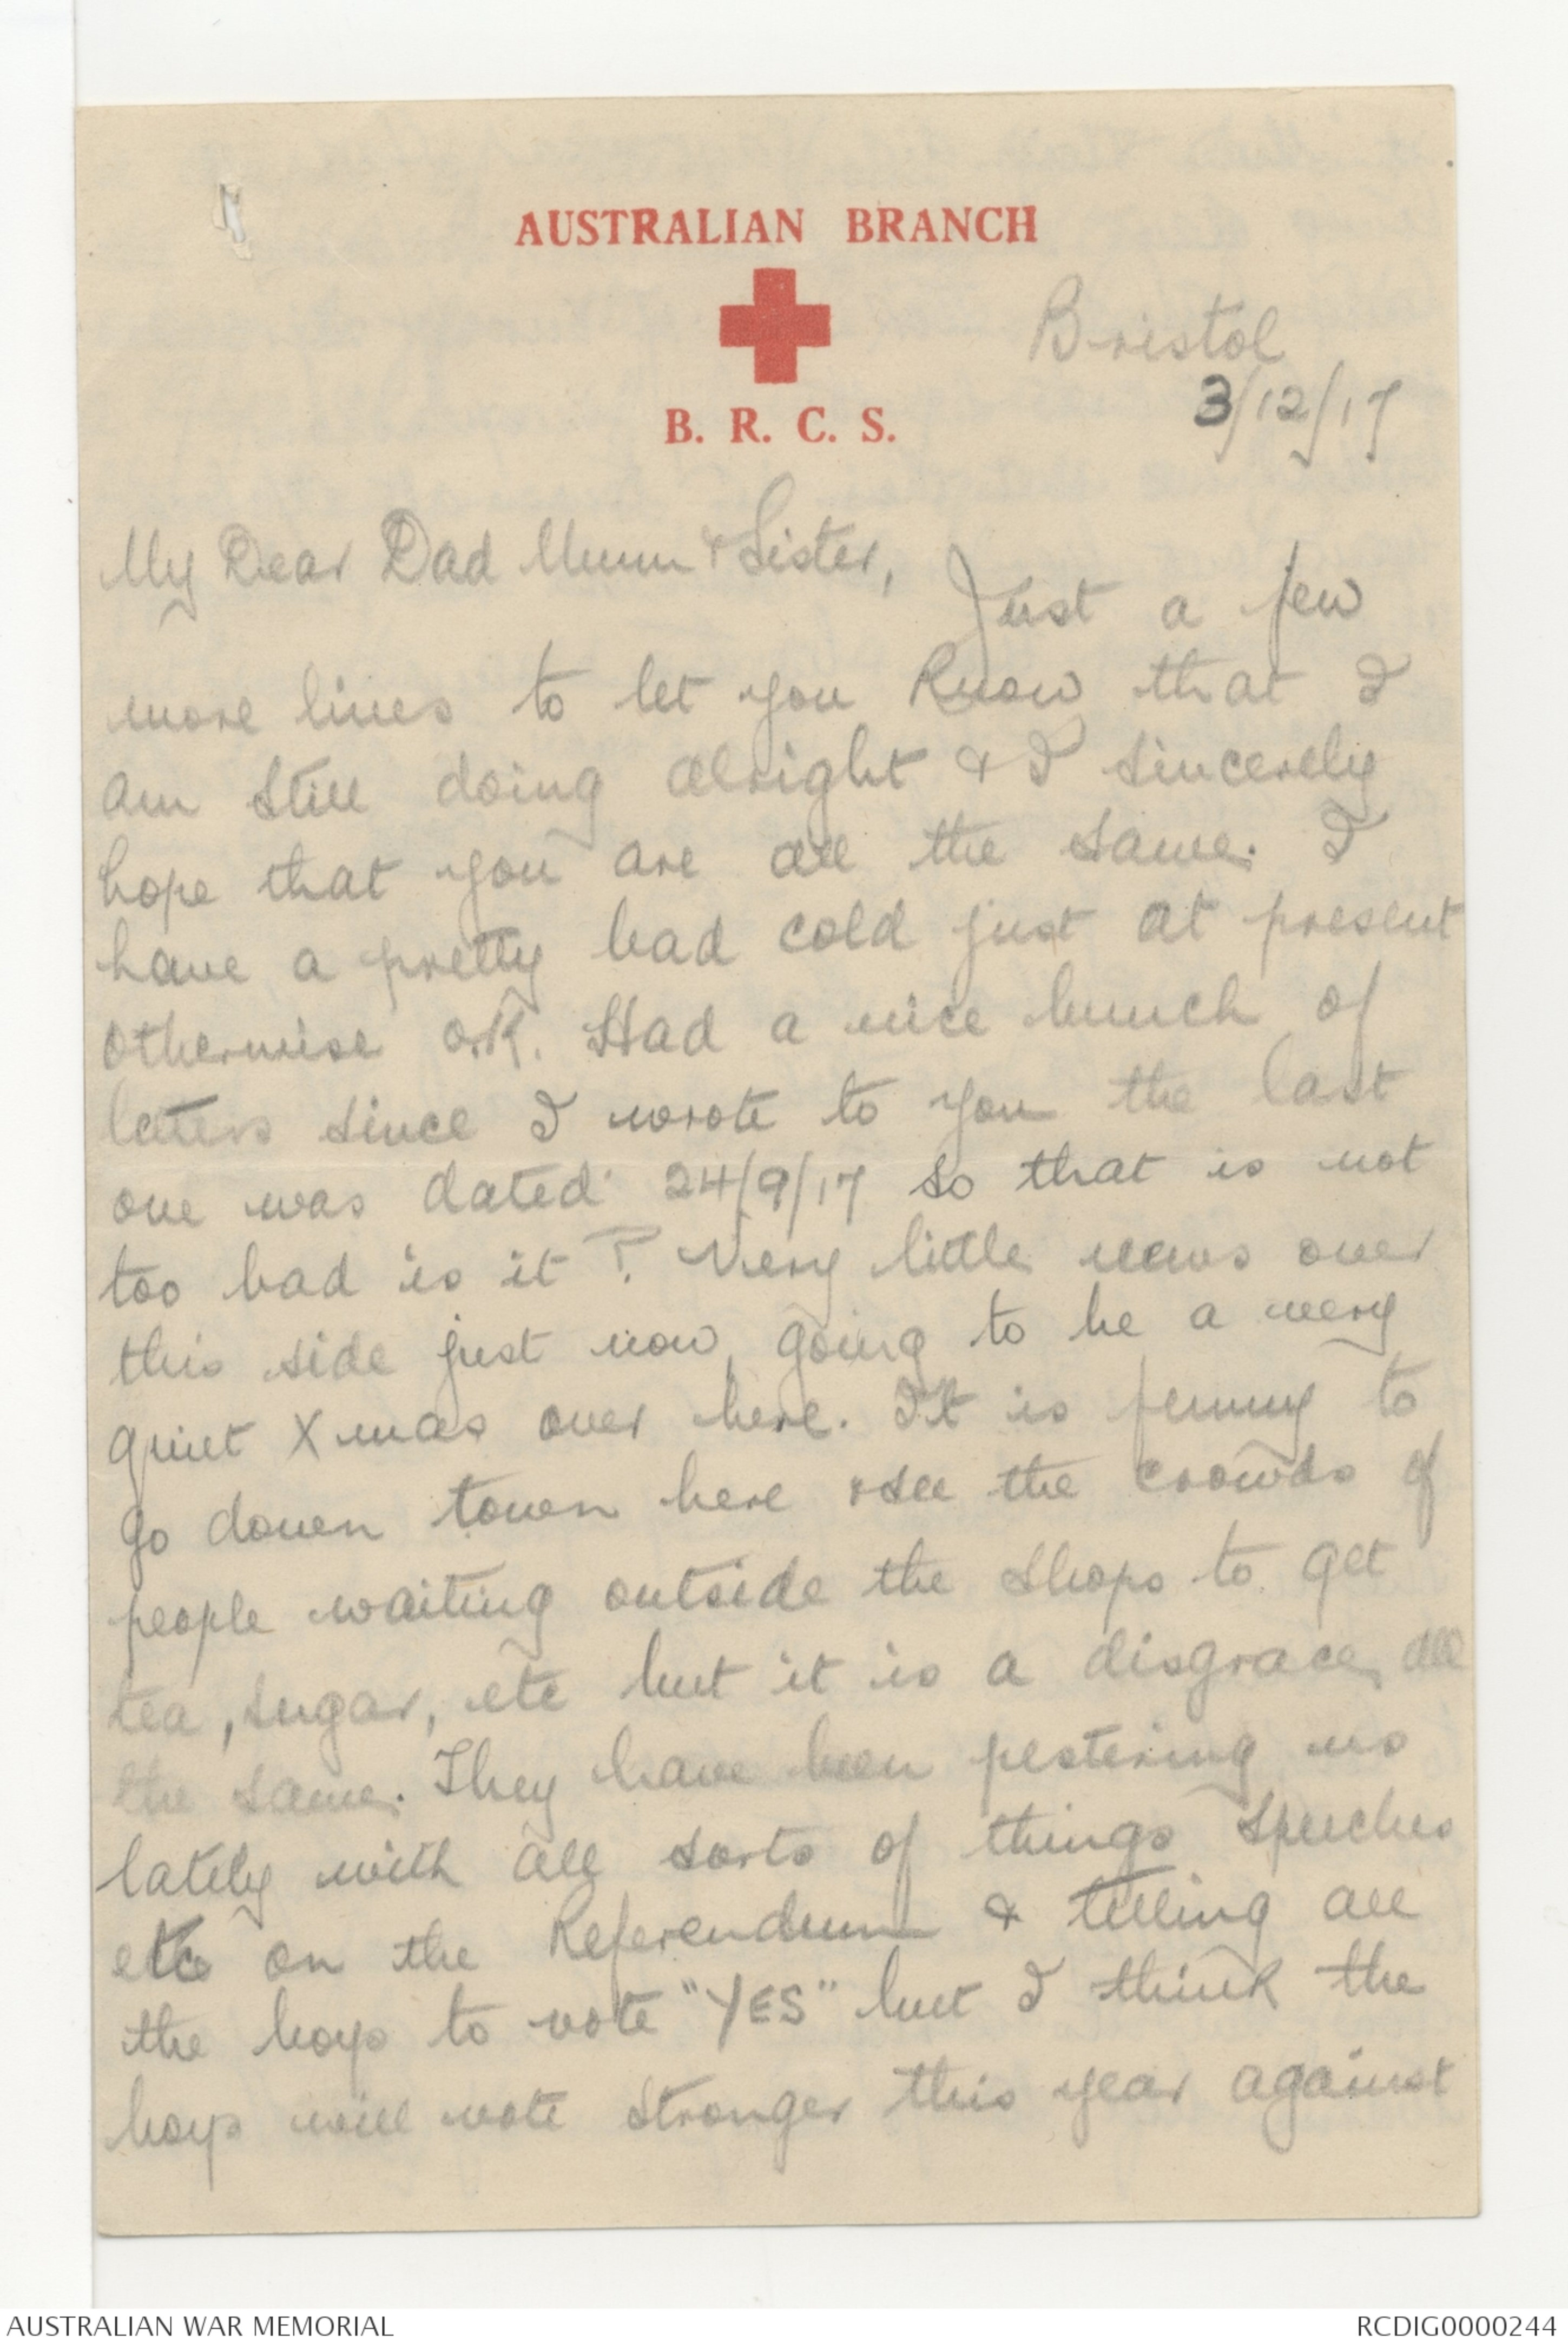 AUSTRALIAN BRANCH
B. R. C. S.
Bristol
3/12/17
My Dear Dad Mum & Sister,
Just a few
more lines to let you know that I
am still doing alright & I sincerely
hope that you are all the same. I
have a pretty bad cold just at present
otherwise O.K. Had a nice bunch of
letters since I wrote to you the last
one was dated 24/9/17 so that is not
too bad is it? Very little news over
this side just now, going to be a very
quiet Xmas over here. It is funny to
go down town here & see the crowds of
people waiting outside the shops to get
tea, sugar, etc but it is a disgrace, all
the same. They have been pestering us
lately with all sorts of things speeches
etc on the Referendum & telling all
the boys to vote "YES" but I think the
boys will vote stronger this year against
AUSTRALIAN WAR MEMORIAL
RCDIG0000244